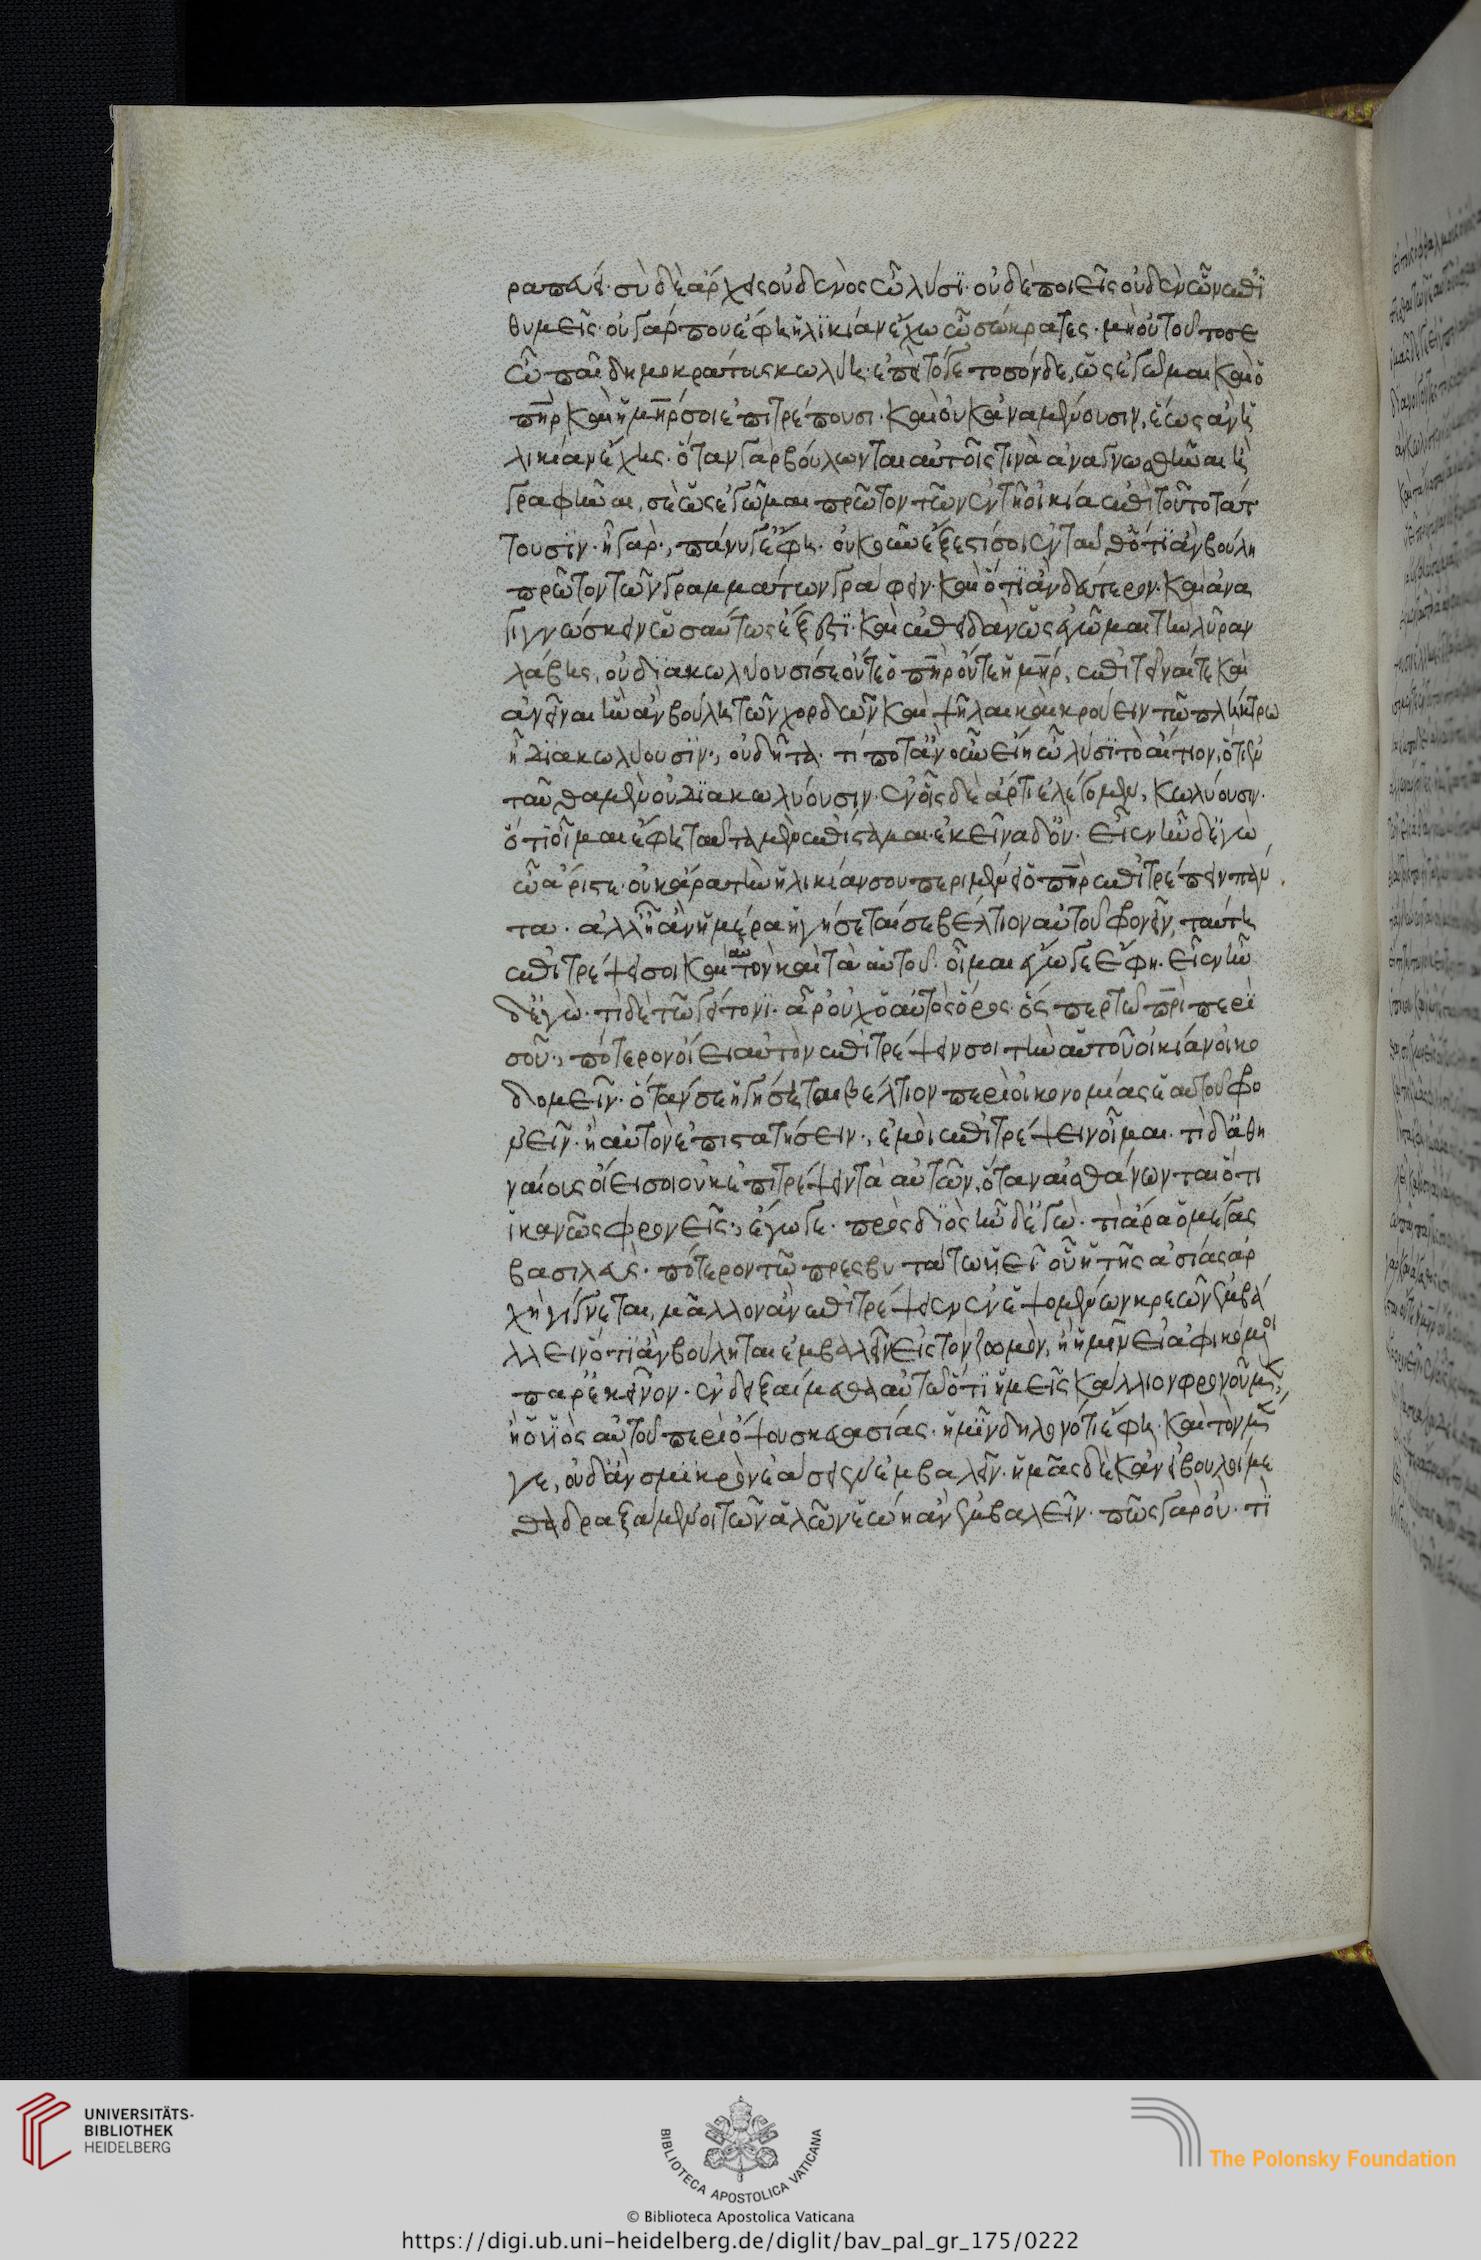 ραπεύει· σὺ δὲ ἄρχεις οὐδενὸς ὦ λύσϊ· οὐδὲ ποιεῖς οὐδὲν ὧν ἐπϊ
θυμεῖς· οὐ γάρ που ἔφη ἡλϊκίαν ἔχω ὦ σώκρατες· μὴ οὐ τοῦτό σε
ὦ παῖ δημοκράτους κωλύει· ἐπεὶ τό γε τοσόνδε, ὡς ἐγὦμαι καὶ ὁ
πῆρ καὶ ἡ μῆρ σοι ἐπιτρέπουσι· καὶ οὐκ ἀναμένουσιν, ἕως ἂν ἡ
λικίαν ἔχης· ὅταν γὰρ βούλωνται αὐτοῖς τινὰ ἀναγνωσθῆναι ἢ
γραφῆναι, σὲ ὡς ἐγὦμαι πρῶτον τῶν ἐν τῆ οἰκία ἐπὶ τοῦτο τάτ
τουσϊν· ἦ γάρ·, πάνυ γ' ἔφη· οὐκοῦν ἔξεστί σοι ἐνταῦθ' ὅ τϊ ἂν βούλη
πρῶτον τῶν γραμμάτων γράφειν· καὶ ὅ τϊ ἂν δεύτερον· καὶ ἀνα
γιγνώσκειν ὡσαύτως ἔξεστϊ· καὶ ἐπειδὰν ὡς ἐγὦμαι τὴν λύραν
λάβης, οὐ διακωλύουσί σε οὔτε ὁ πῆρ οὔτε ἡ μῆρ, ἐπιτεῖναί τε καὶ
ἀνεῖναι ἣν ἂν βούλη τῶν χορδῶν καὶ ψῆλαι καὶ κρούειν τῶ πλήκτρω
ἢ διακωλύουσϊν·, οὐ δῆτα· τί ποτ' ἂν οὖν εἴη ὦ λύσϊ τὸ αἴτιον, ὅτι ἐν
ταῦθα μὲν οὐ διακωλύουσιν· ἐν οἷς δὲ ἄρτι ἐλέγομεν, κωλύουσιν·
ὅτι οἶμαι ἔφη ταῦτα μὲν ἐπίσταμαι· ἐκεῖνα δ' οὔ· εἶεν ἦν δ' ἐγὼ
ὦ ἄριστε· οὐκ ἄρα τὴν ἡλικίαν σου περιμένει ὁ πῆρ ἐπιτρέπειν πάν
τα· ἀλλ' ἧ ἂν ἡμέρα ἡγήσεταί σε βέλτιον αὑτοῦ φρονεῖν, ταύτη
ἐπιτρέψει σοι καὶ αὑτὸν καὶ τὰ αὑτοῦ· οἶμαι ἔγωγε ἔφη· εἶεν ἦν
δ' ἐγὼ· τί δὲ τῶ γείτονϊ· ἆρ' οὐχ ὁ αὐτὸς ὅρος· ὅς περ τῶ πρὶ περὶ
σοῦ·, πότερον οἴει αὐτὸν ἐπιτρέψειν σοι τὴν αὑτοῦ οἰκίαν οἰκο
δομεῖν· ὅταν σε ἡγήσηται βέλτιον περὶ οἰκονομίας ἢ αὑτοῦ φρο
νεῖν· ἢ αὐτὸν ἐπιστατήσειν·, ἐμοὶ ἐπιτρέψειν οἶμαι· τί δ' ἀθη
ναίοις οἴει σοι οὐκ ἐπιτρέψειν τὰ αὑτῶν, ὅταν αἰσθάνωνται ὅτι
ἱκανῶς φρονεῖς·, ἔγωγε· πρὸς διὸς ἦν δ' ἐγὼ· τί ἄρα ὁ μέγας
βασιλεὺς· πότερον τῶ πρεσβυτάτω υἱεῖ οὗ ἡ τῆς ἀσίας ἀρ
χὴ γίγνεται, μᾶλλον ἂν ἐπιτρέψειεν ἑψομένων κρεῶν ἐμβά
λλειν ὅ τϊ ἂν βούληται ἐμβαλεῖν εἰς τὸν ζωμὸν, ἢ ἡμῖν εἰ ἀφικόμενοι
παρ' ἐκεῖνον· ἐνδειξαίμεθα αὐτῶ ὅτϊ ἡμεῖς κάλλιον φρονοῦμεν·,
ἢ ὁ υἱὸς αὐτοῦ περὶ ὄψου σκευασίας· ἡμῖν δηλονότι ἔφη· καὶ τὸν μέν
γε, οὐδ' ἂν σμικρὸν ἐάσειεν ἐμβαλεῖν· ἡμᾶς δὲ κἂν εἰ βουλοίμε
θα δραξάμενοι τῶν ἁλῶν ἐώη ἂν ἐμβαλεῖν· πῶς γὰρ οὔ· τϊ
UNIVERSITÄTS-
BIBLIOTHEK
HEIDELBERG
BIBLIOTECA APOSTOLICA VATICANA
The Polonsky Foundation
© Biblioteca Apostolica Vaticana
https://digi.ub.uni-heidelberg.de/diglit/bav_pal_gr_175/0222